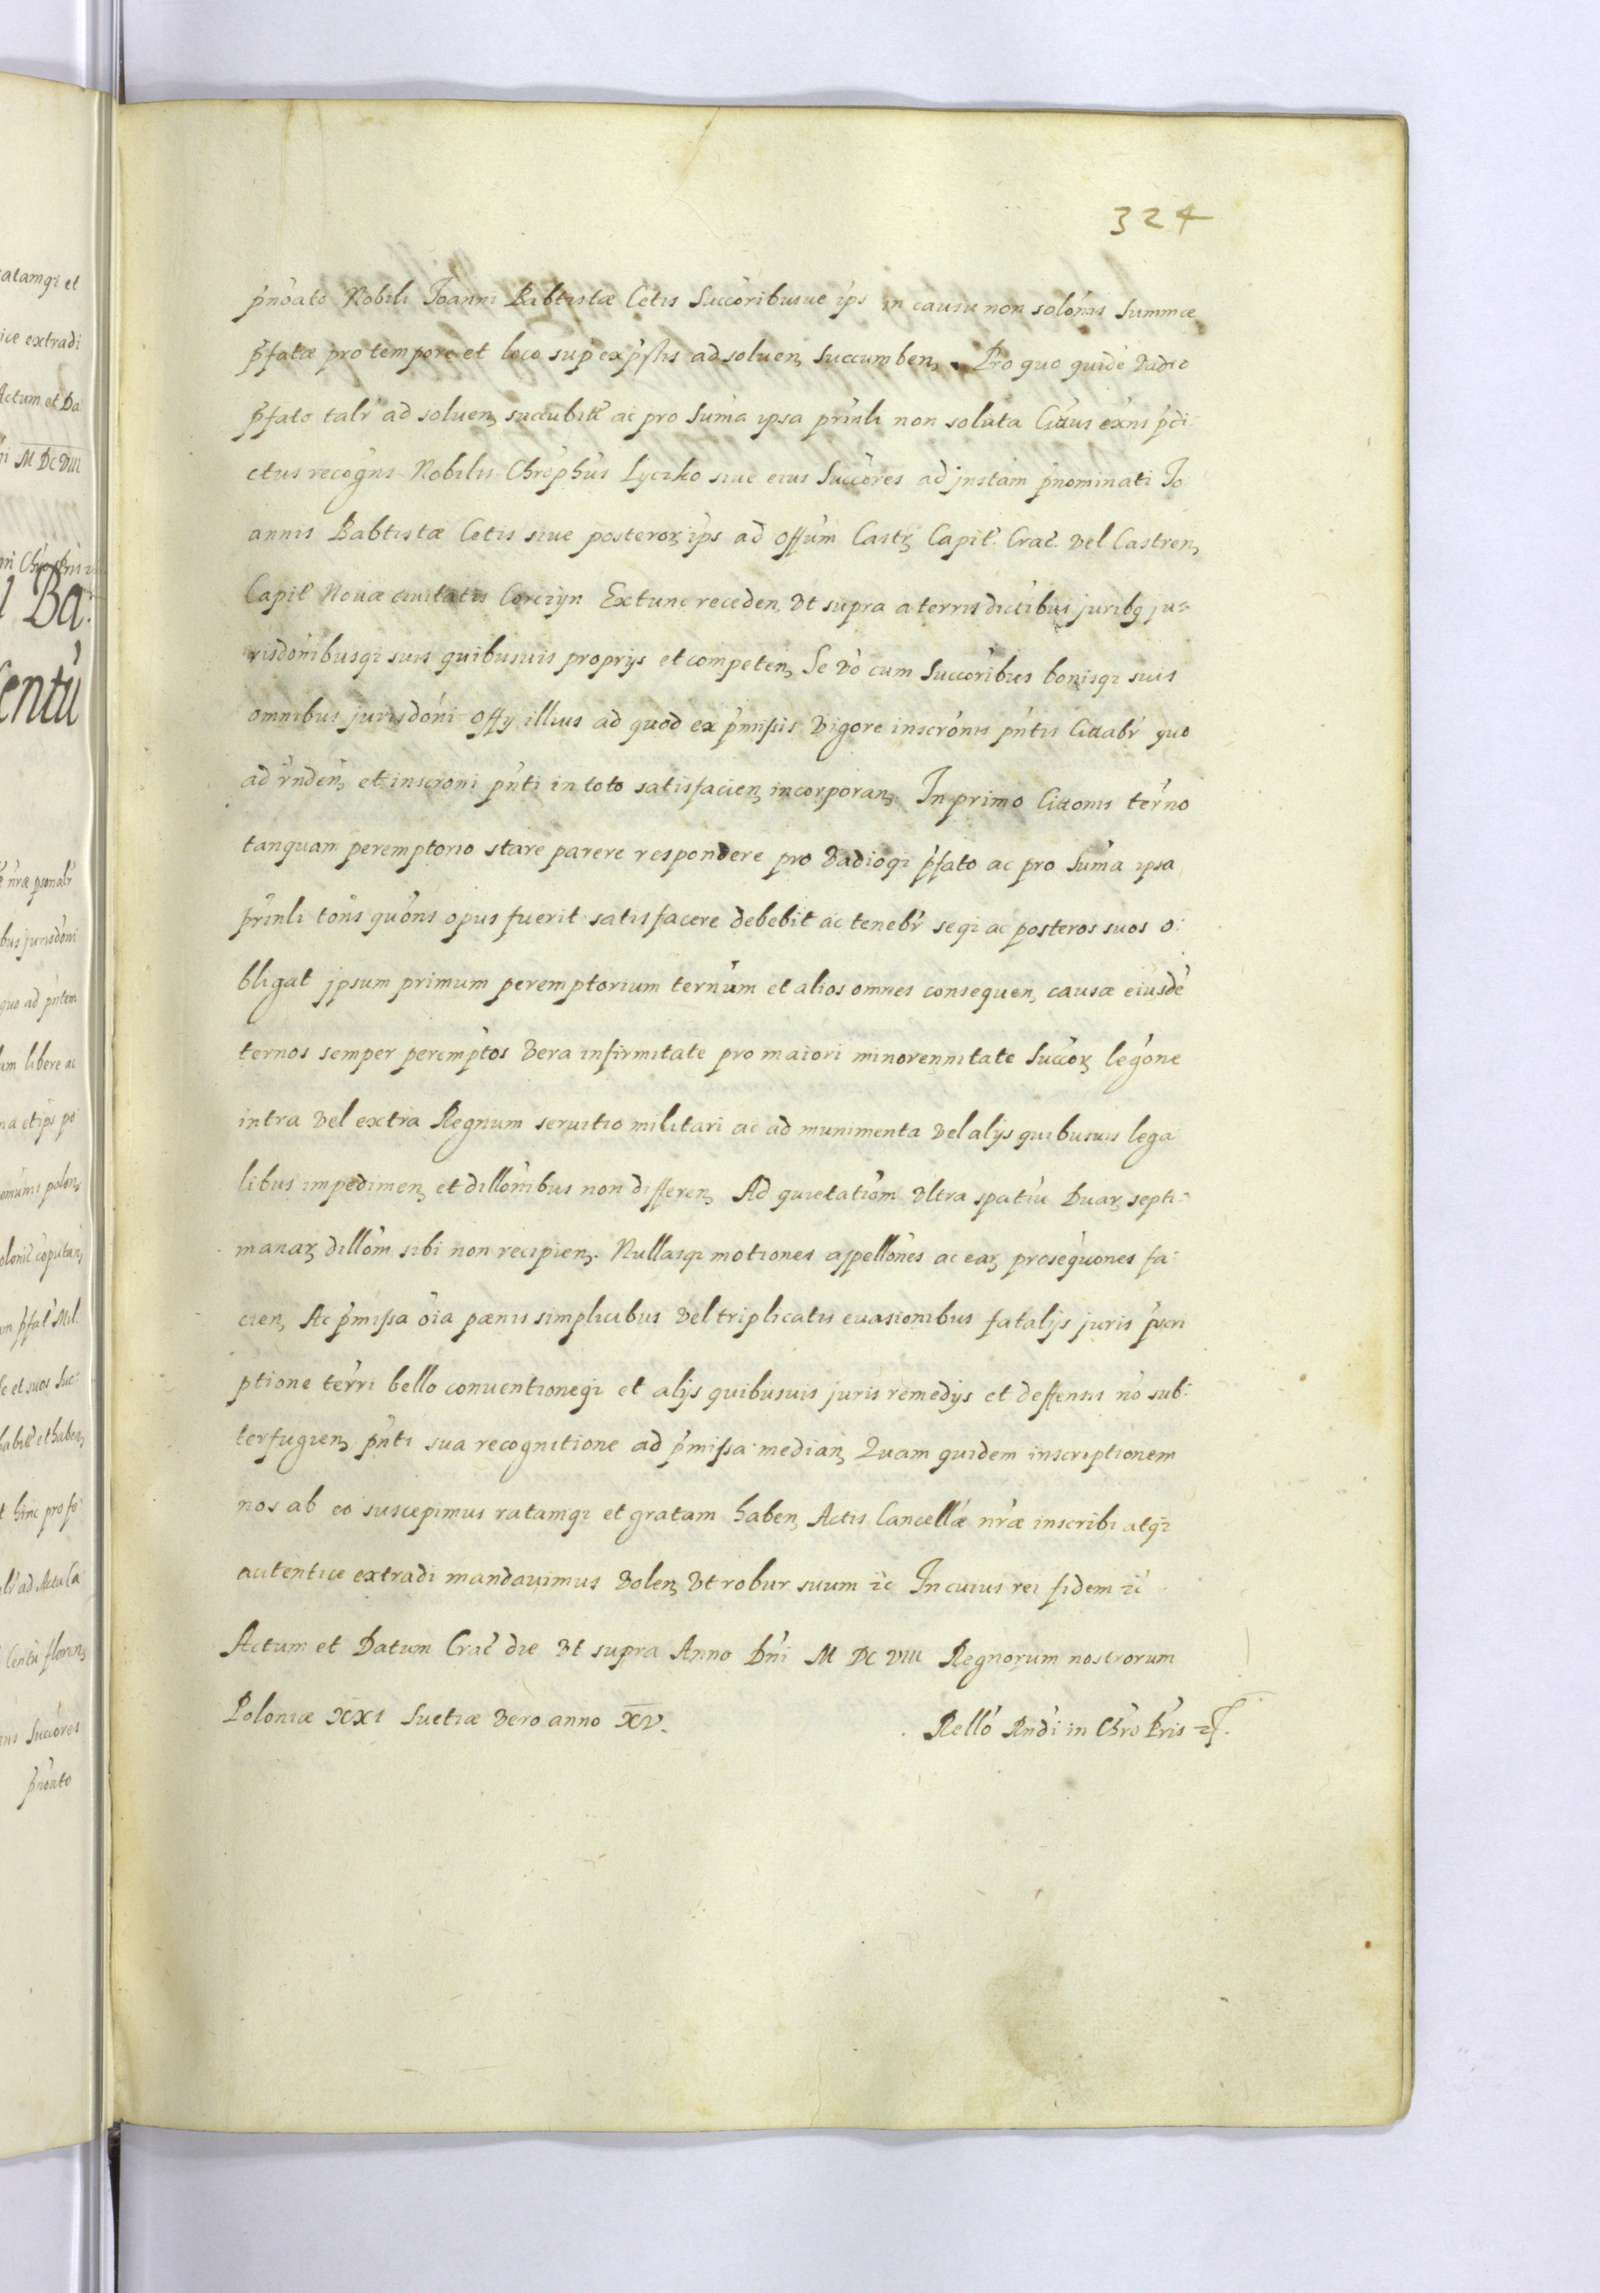 324
atamqȝ et
ice extradi
Actum et Da
ni M DC VIII
ni Chrophri
l Ba
Centū
nrae psonalr
bus jurisdoni
quo ad pntem
um libere ac
na et ips po
polon,
coputan,
m pfat Mil.
se et suos Suc
habit et haben,
t hinc pro se
ad Acta Ca
Centū floren,
Succores
pnoato
pnoato Nobili Joanni Babtistæ Cetis Succoribusue ips in causu non solonis Summæ
pfatæ pro tempore et loco sup exptis ad soluen, Succumben, Pro quo quide Vadio
pfato talr ad soluen, succubit ac pro Suma ipsa prinli non soluta Citus exns pdi
ctus recogns Nobilis Chrophus Lyczko siue eius Succores ad jnstam pnominati Jo
annis Babtistæ Cetis siue posteroꝝ ips ad Offum Castꝝ Capit. Crac. Vel Castren,
Capit Nouæ ciuitatis Corczyn Extunc receden, Vt supra a terris dictibus juribꝫ ju=
risdonibusqȝ suis quibusuis proprijs et competen, Se Vo cum Succoribus bonisqȝ suis
omnibus jurisdoni Offy illius ad quod ex pmissis Vigore inscronis pntis Citabr quo
ad rnden, et inscroni pnti in toto satisfacien, incorporan, In primo Citaonis terno
tanquam peremptorio stare parere respondere pro Vadioqȝ pfato ac pro Suma ipsa
prinli tons quons opus fuerit satisfacere debebit ac tenebr seqȝ ac posteros suos o:
bligat jpsum primum peremptorium ternum et alios omnes consequen, causæ eiusde
ternos semper peremptos Vera infirmitate pro maiori minorennitate Succoꝝ legone
intra Vel extra Regnum seruitio militari ac ad munimenta Vel alijs quibusuis lega
libus impedimen, et dillonibus non differen, Ad quietatiom Vltra spatiu Duaꝝ septi=
manaꝝ dillom sibi non recipien,. Nullasqȝ motiones appellones ac eaꝝ prosequones fa:
cien, Ac pmissa oia pænis simplicibus Vel triplicatis euasionibus fatalijs juris pscri
ptione terri bello conuentioneqȝ et alijs quibusuis juris remedijs et deffensis no sub:
terfugien, pnti sua recognitione ad pmissa median, Quam quidem inscriptionem
nos ab eo suscepimus ratamqȝ et gratam haben, Actis Cancellæ nræ inscribi atqȝ
autentice extradi mandauimus Volen, Vt robur suum ꝛc In cuius rei fidem ꝛc
Actum et Datum Crac die Vt supra Anno Dni M DC VIII Regnorum nostrorum
Poloniæ XXI Suetiæ Vero anno XV.
Rello Rndi in Chro Pris ꝛc